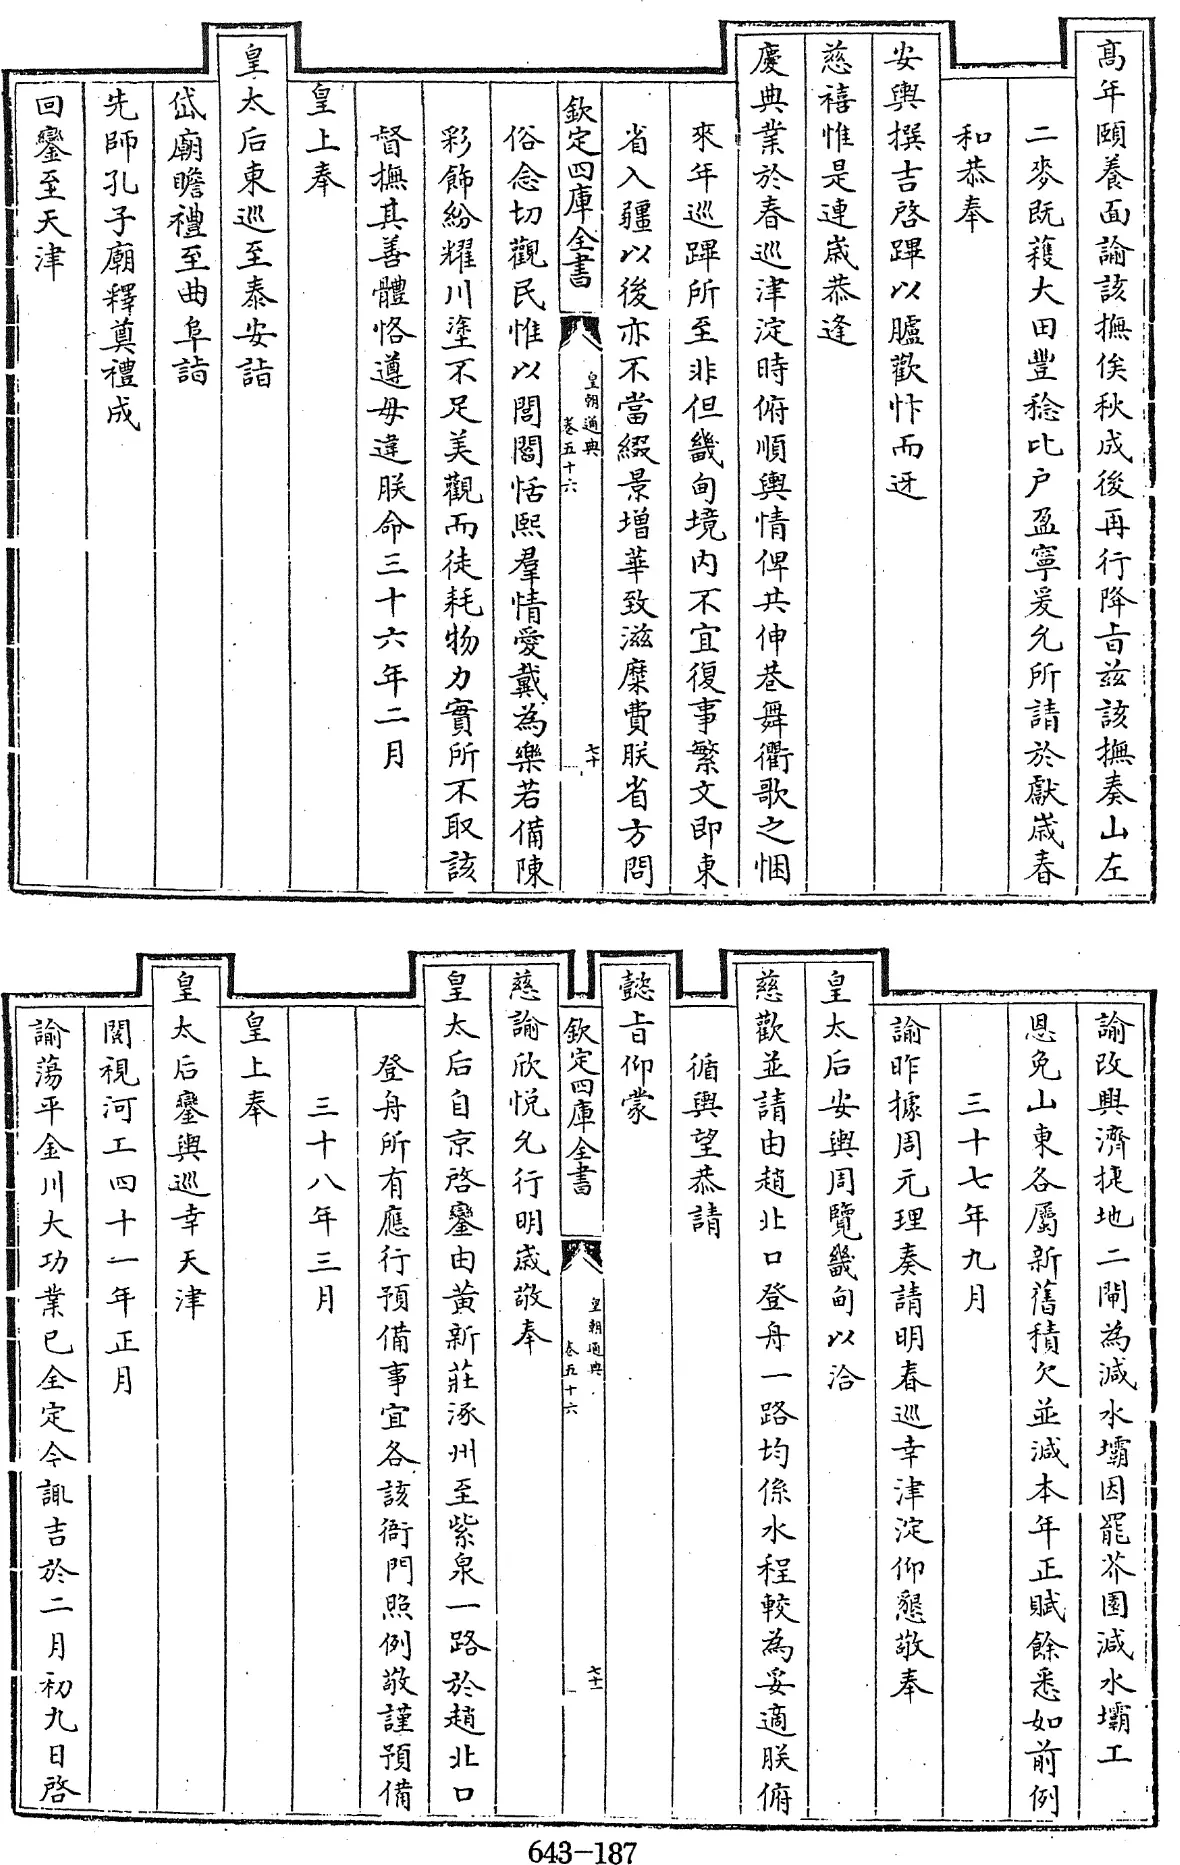 高年頤養面諭該撫俟秋成後再行降旨茲該撫奏山左
二麥既穫大田豐稔比户盈寧爰允所請於獻嵗春
和恭奉
安輿撰吉啓蹕以臚歡忭而迓
慈禧惟是連嵗恭逢
慶典業於春巡津淀時俯順輿情俾共伸巷舞衢歌之悃
來年巡蹕所至非但畿甸境内不宜復事繁文即東
省入疆以後亦不當綴景增華致滋糜費朕省方問
欽定四庫全書
皇朝通典
卷五十六
七十
俗念切觀民惟以閭閻恬熙羣情愛戴為樂若備陳
彩飾紛耀川塗不足美觀而徒耗物力實所不取該
督撫其善體恪遵毋違朕命三十六年二月
皇上奉
皇太后東巡至泰安詣
岱廟瞻禮至曲阜詣
先師孔子廟釋奠禮成
回鑾至天津
諭改興濟捷地二閘為減水壩因罷芥園減水壩工
恩免山東各屬新舊積欠並減本年正賦餘悉如前例
三十七年九月
諭昨據周元理奏請明春巡幸津淀仰懇敬奉
皇太后安輿周覽畿甸以洽
慈歡並請由趙北口登舟一路均係水程較為妥適朕俯
循輿望恭請
懿旨仰蒙
欽定四庫全書
皇朝通典
卷五十六
七十一
慈諭欣悦允行明嵗敬奉
皇太后自京啓鑾由黄新莊涿州至紫泉一路於趙北口
登舟所有應行預備事宜各該衙門照例敬謹預備
三十八年三月
皇上奉
皇太后鑾輿巡幸天津
閲視河工四十一年正月
諭蕩平金川大功業已全定今諏吉於二月初九日啓
643-187